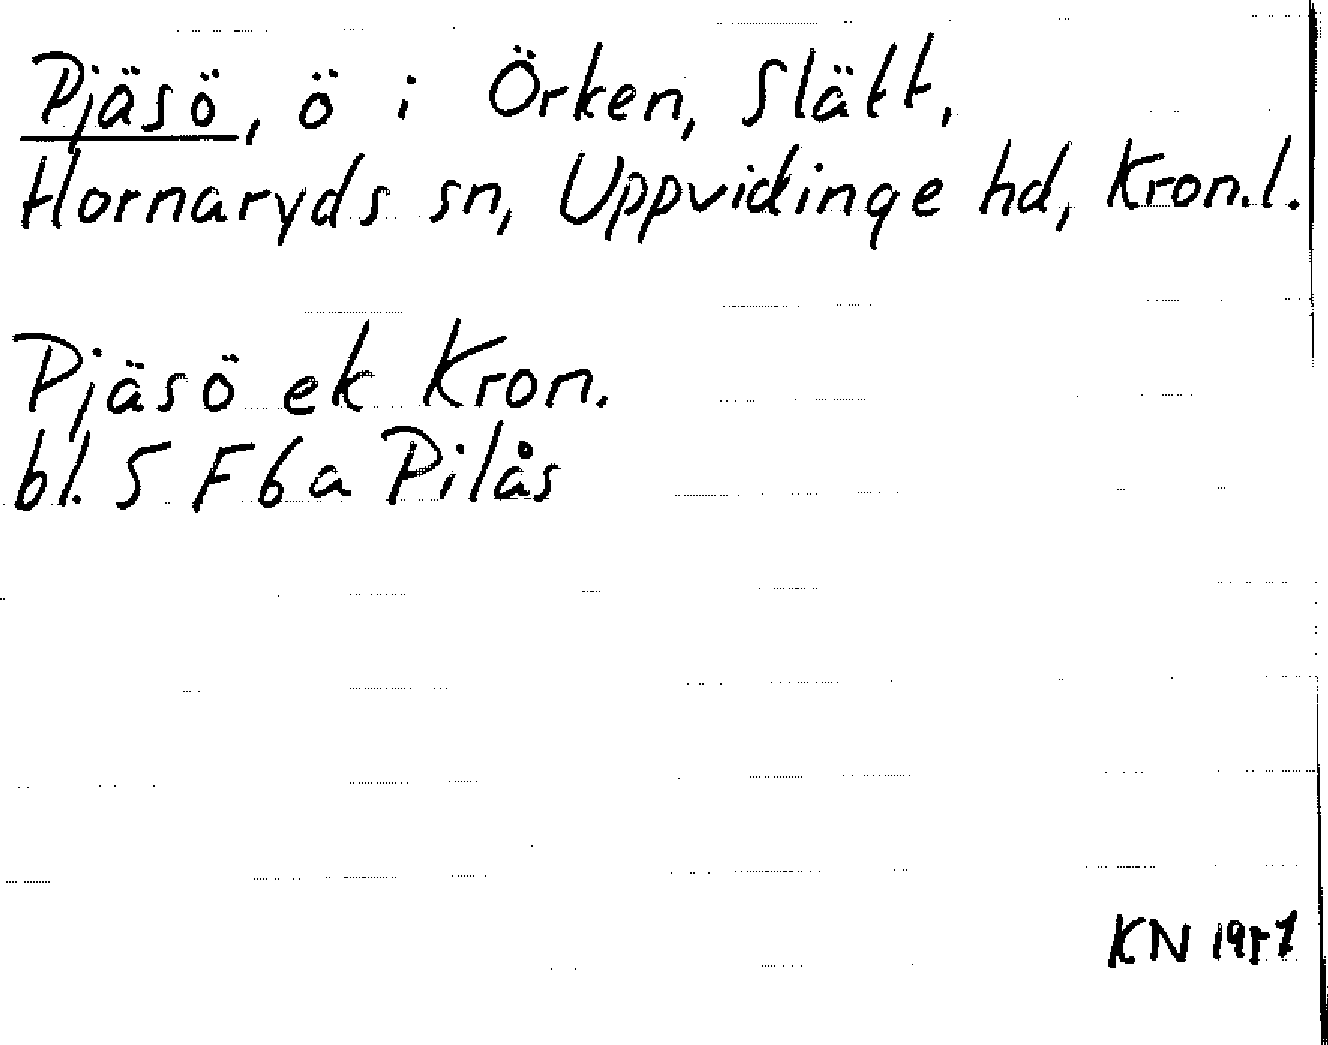 Pjäsö, ö i Örken, Slätt,
Hornaryds sn, Uppvidinge hd, Kron.l.
Pjäsö ek Kron.
bl. 5 F 6 a Pilås
KN